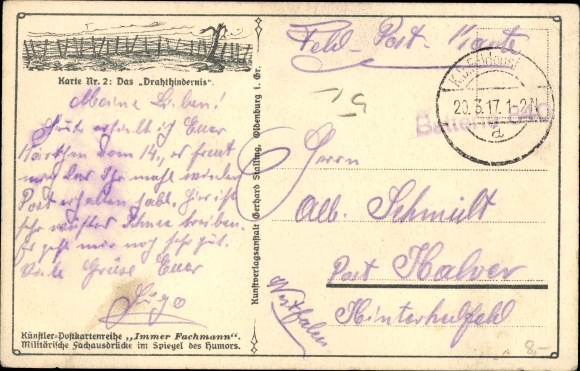 Feld-Post-Karte
K.D. Feldpost
20.3.17. 1-2N
a
Karte Nr. 2: Das „Drahthindernis".
Meine Lieben!
Heute erhielt ich Euer
Kärtchen vom 14., es freut
mich das Ihr mal wieder
Post erhalten habt. Hier ist
sehr wüstes Schnee treiben.
Es geht mir noch sehr gut.
Viele Grüse Euer
Hugo
Künstler-Postkartenreihe „Immer Fachmann".
Militärische Fachausdrücke im Spiegel des Humors.
Kunstverlagsanstalt Gerhard Stalling, Oldenburg i. Gr.
Herrn
Alb. Schmidt
Post Halver
Hinterhulfeld
Westfalen
8,-